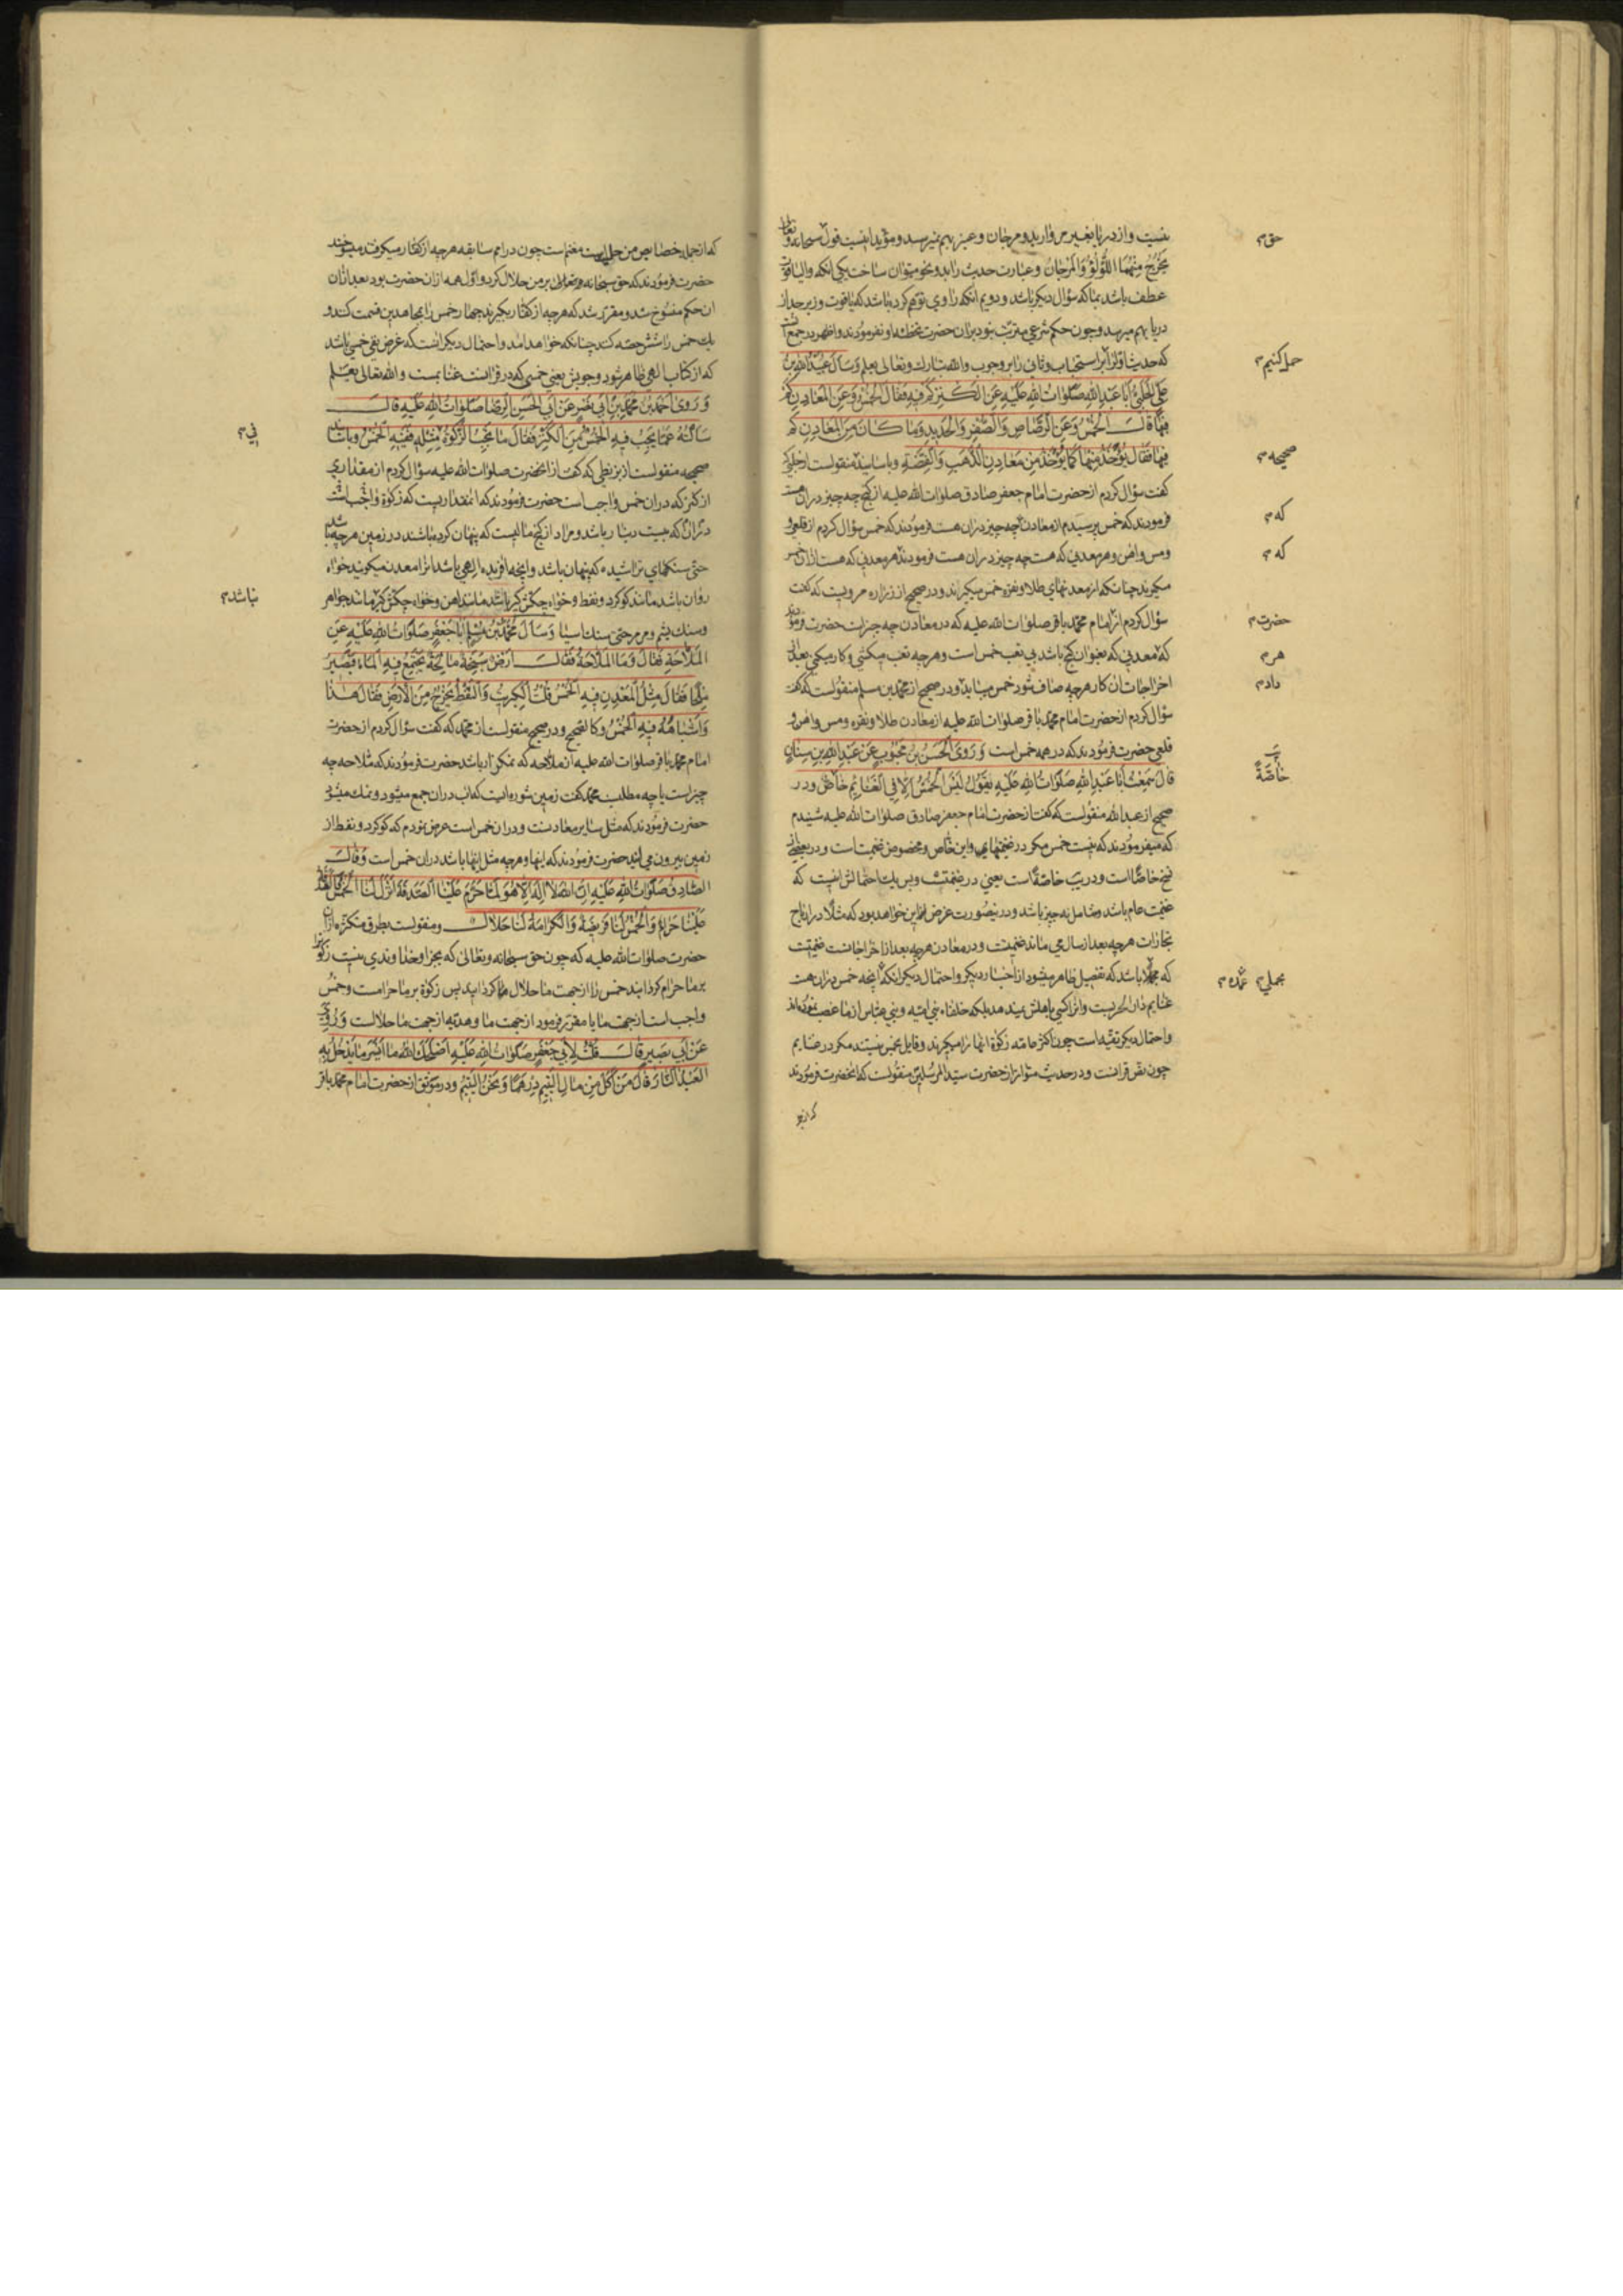 نیست و از دریا بغیر مروارید و مرجان و عنبر بهم نمیرسد و مؤید اینست قول سبحانه وتعالی
یَخْرُجُ مِنْهُمَا اللُّؤْلُؤُ وَالْمَرْجَانُ و عبارت حدیث را بدو نحو میتوان ساخت یکی آنکه والیاقوت
عطف باشد بما که سؤال دیگر باشد و دویم آنکه راوی توهم کرده باشد که یاقوت و زبرجد از
دریا بهم میرسد و چون حکم شرعی مترتب نبود بران حضرت تخطئه او نفرمودند و اظهر در جمع
که حدیث اول را بر استحباب و ثانی را بر وجوب والله تبارک وتعالی یعلم وَسَأَلَ عُبَیْدُاللهِ بْنُ
عَلِیٍّ الْحَلَبِیُّ أَبَا عَبْدِاللهِ صَلَوَاتُ اللهِ عَلَیْهِ عَنِ الْکَنْزِ کَمْ فِیهِ فَقَالَ الْخُمُسُ وَعَنِ الْمَعَادِنِ کَمْ
فِیهَا قَالَ الْخُمُسُ وَعَنِ الرَّصَاصِ وَالصُّفْرِ وَالْحَدِیدِ وَمَا کَانَ مِنَ الْمَعَادِنِ کَمْ
فِیهَا فَقَالَ یُؤْخَذُ مِنْهَا کَمَا یُؤْخَذُ مِنْ مَعَادِنِ الذَّهَبِ وَالْفِضَّةِ و باسانید منقولست از حلبی که
گفت سؤال کردم از حضرت امام جعفر صادق صلوات الله علیه از گنج چه چیز دران هست
فرمودند که خمس پرسیدم از معادن چه چیز دران هست فرمودند که خمس سؤال کردم از قلعی و
ومس و آهن و هر معدنی که هست چه چیز دران هست فرمودند هر معدنی که هست ازان خمس
میگیرند چنانکه از معدنهای طلا و نقره خمس میگیرند و در صحیح از زراره مرویست که گفت
سؤال کردم از امام محمد باقر صلوات الله علیه که در معادن چه چیزات حضرت فرمودند
که معدنی که بعنوان گنج باشد بی تعب خمس است و هر چه تعب میکشی و کار میکنی بعد از
اخراجات آن کار هر چه صاف شود خمس میباید و در صحیح از محمد بن مسلم منقولست که گفت
سؤال کردم از حضرت امام محمد باقر صلوات الله علیه از معادن طلا و نقره و مس و آهن و
قلعی حضرت فرمودند که در همه خمس است وَرَوَی الْحَسَنُ بْنُ مَحْبُوبٍ عَنْ عَبْدِاللهِ بْنِ سِنَانٍ
قَالَ سَمِعْتُ أَبَا عَبْدِاللهِ صَلَوَاتُ اللهِ عَلَیْهِ یَقُولُ لَیْسَ الْخُمُسُ إِلَّا فِی الْغَنَائِمِ خَاصٌّ و در
صحیح از عبدالله منقولست که گفت از حضرت امام جعفر صادق صلوات الله علیه شنیدم
که میفرمودند که نیست خمس مگر در غنیمتهای و این خاص و مخصوص غنیمت است و در بعضی از
نسخ خاصا است و در یب خاصة است یعنی در غنیمت و بس یک احتمالش اینست که
غنیمت عام باشد و شامل نه چیز باشد و در ینصورت غرض این خواهد بود که مثلا در ارباح
تجارات هر چه بعد از سال می ماند غنیمت و در معادن هر چه بعد از اخراجات غنیمت
که مجملا باشد که تفصیل ظاهر میشود از اخبار دیگر و احتمال دیگر آنکه آنچه خمس دران هست
غنایم دار الحربست و آنرا کسی باهلش نمیدهد بلکه خلفاء بنی امیه و بنی عباس از ما غصب نموده اند
و احتمال دیگر تقیه است چون اکثر عامه زکوة اینها را میگیرند و قایل بخمس نیستند مگر در غنایم
چون نص قرانست و در حدیث متواتر از حضرت سید المرسلین منقولست که انحضرت فرمودند
حق م
حمل کنیم م
صحیحه م
که م
که م
حضرت م
هر م
دادم
یب
خاصّةً
مجملی م
که از جمله خصایص من حلیت مغنم است چون در امم سابقه هر چه از کفار میگرفتند میسوختند
حضرت فرمودند که حق سبحانه وتعالی بر من حلال کرد و اول همه ازان حضرت بود بعد ازان
آن حکم منسوخ شد و مقرر شد که هر چه از کفار بگیرند چهار خمس را بمجاهدین قسمت کنند و
یک خمس را شش حصه کنند چنانکه خواهد آمد و احتمال دیگر آنست که غرض نفی خمسی باشد
که از کتاب الهی ظاهر شود وجوبش یعنی خمسی که در قرانست غنایمست والله تعالی یعلم
وَرَوَی أَحْمَدُ بْنُ مُحَمَّدِ بْنِ أَبِی نَصْرٍ عَنْ أَبِی الْحَسَنِ الرِّضَا صَلَوَاتُ اللهِ عَلَیْهِ قَالَ
سَأَلْتُهُ عَمَّا یَجِبُ فِیهِ الْخُمُسُ مِنَ الْکَنْزِ فَقَالَ مَا یَجِبُ الزَّکَوةُ مِثْلِهِ فَفِیهِ الْخُمُسُ و باسانید
صحیحه منقولست از بزنطی که گفت از انحضرت صلوات الله علیه سؤال کردم از مقداری
از کنز که دران خمس واجب است حضرت فرمودند که انمقداریست که زکوة واجب است
دران که بیست دینار باشد و مراد از گنج مالیست که پنهان کرده باشند در زمین هر چه باشد
حتی سنگهای تراشیده که پنهان باشد و آنچه آفریده الهی باشد انرا معدن میگویند خواه
روان باشد مانند گوگرد و نفط و خواه چکش گیر باشد مانند آهن و خواه چکش گیر ما شد جواهر
و سنک یشم و مرمر حتی سنک آسیا وَسَأَلَ مُحَمَّدُ بْنُ مُسْلِمٍ أَبَا جَعْفَرٍ صَلَوَاتُ اللهِ عَلَیْهِ عَنِ
الْمَلَّاحَةِ فَقَالَ وَمَا الْمَلَّاحَةُ فَقَالَ أَرْضٌ سَبِخَةٌ مَالِحَةٌ یَجْتَمِعُ فِیهِ الْمَاءُ فَیَصِیرُ
مِلْحًا فَقَالَ مِثْلُ الْمَعْدِنِ فِیهِ الْخُمُسُ قُلْتُ الْکِبْرِیتُ وَالنِّفْطُ یَخْرُجُ مِنَ الْأَرْضِ فَقَالَ هَذَا
وَأَشْبَاهُهُ فِیهِ الْخُمُسُ و کالصحیح و در صحیح منقولست از محمد که گفت سؤال کردم از حضرت
امام محمد باقر صلوات الله علیه از ملاحه که نمکزار باشد حضرت فرمودند که ملاحه چه
چیز است یا چه مطلب محمد گفت زمین شوره ایست که آب دران جمع میشود و نمک میشود
حضرت فرمودند که مثل سایر معادنست و دران خمس است عرض نمودم که گوگرد و نفط از
زمین بیرون می آید حضرت فرمودند که اینها و هر چه مثل اینها باشد دران خمس است وَقَالَ
الصَّادِقُ صَلَوَاتُ اللهِ عَلَیْهِ إِنَّ اللهَ لَا إِلَهَ إِلَّا هُوَ لَمَّا حَرَّمَ عَلَیْنَا الصَّدَقَةَ أَنْزَلَ لَنَا الْخُمُسَ فَالصَّدَقَةُ
عَلَیْنَا حَرَامٌ وَالْخُمُسُ لَنَا فَرِیضَةٌ وَالْکَرَامَةُ لَنَا حَلَالٌ و منقولست بطرق متکثره ازان
حضرت صلوات الله علیه که چون حق سبحانه وتعالی که بجز او خداوندی نیست زکوة را
بر ما حرام کردانید خمس را از جهت ما حلال کردانید پس زکوة بر ما حرامست و خمس
واجب است از جهت ما یا مقرر فرمود از جهت ما و هدیه از جهت ما حلالست وَرُوِیَ
عَنْ أَبِی بَصِیرٍ قَالَ قُلْتُ لِأَبِی جَعْفَرٍ صَلَوَاتُ اللهِ عَلَیْهِ أَصْلَحَکَ اللهُ مَا أَیْسَرُ مَا یَدْخُلُ بِهِ
الْعَبْدُ النَّارَ قَالَ مَنْ أَکَلَ مِنْ مَالِ الْیَتِیمِ دِرْهَمًا وَنَحْنُ الْیَتِیمُ و در موثق از حضرت امام محمد باقر
فی م
نباشد م